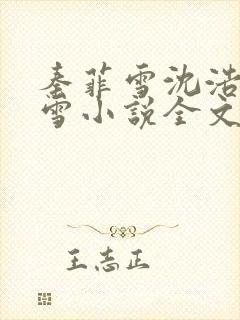 秦菲雪沈浩
雪小说全文
王志正